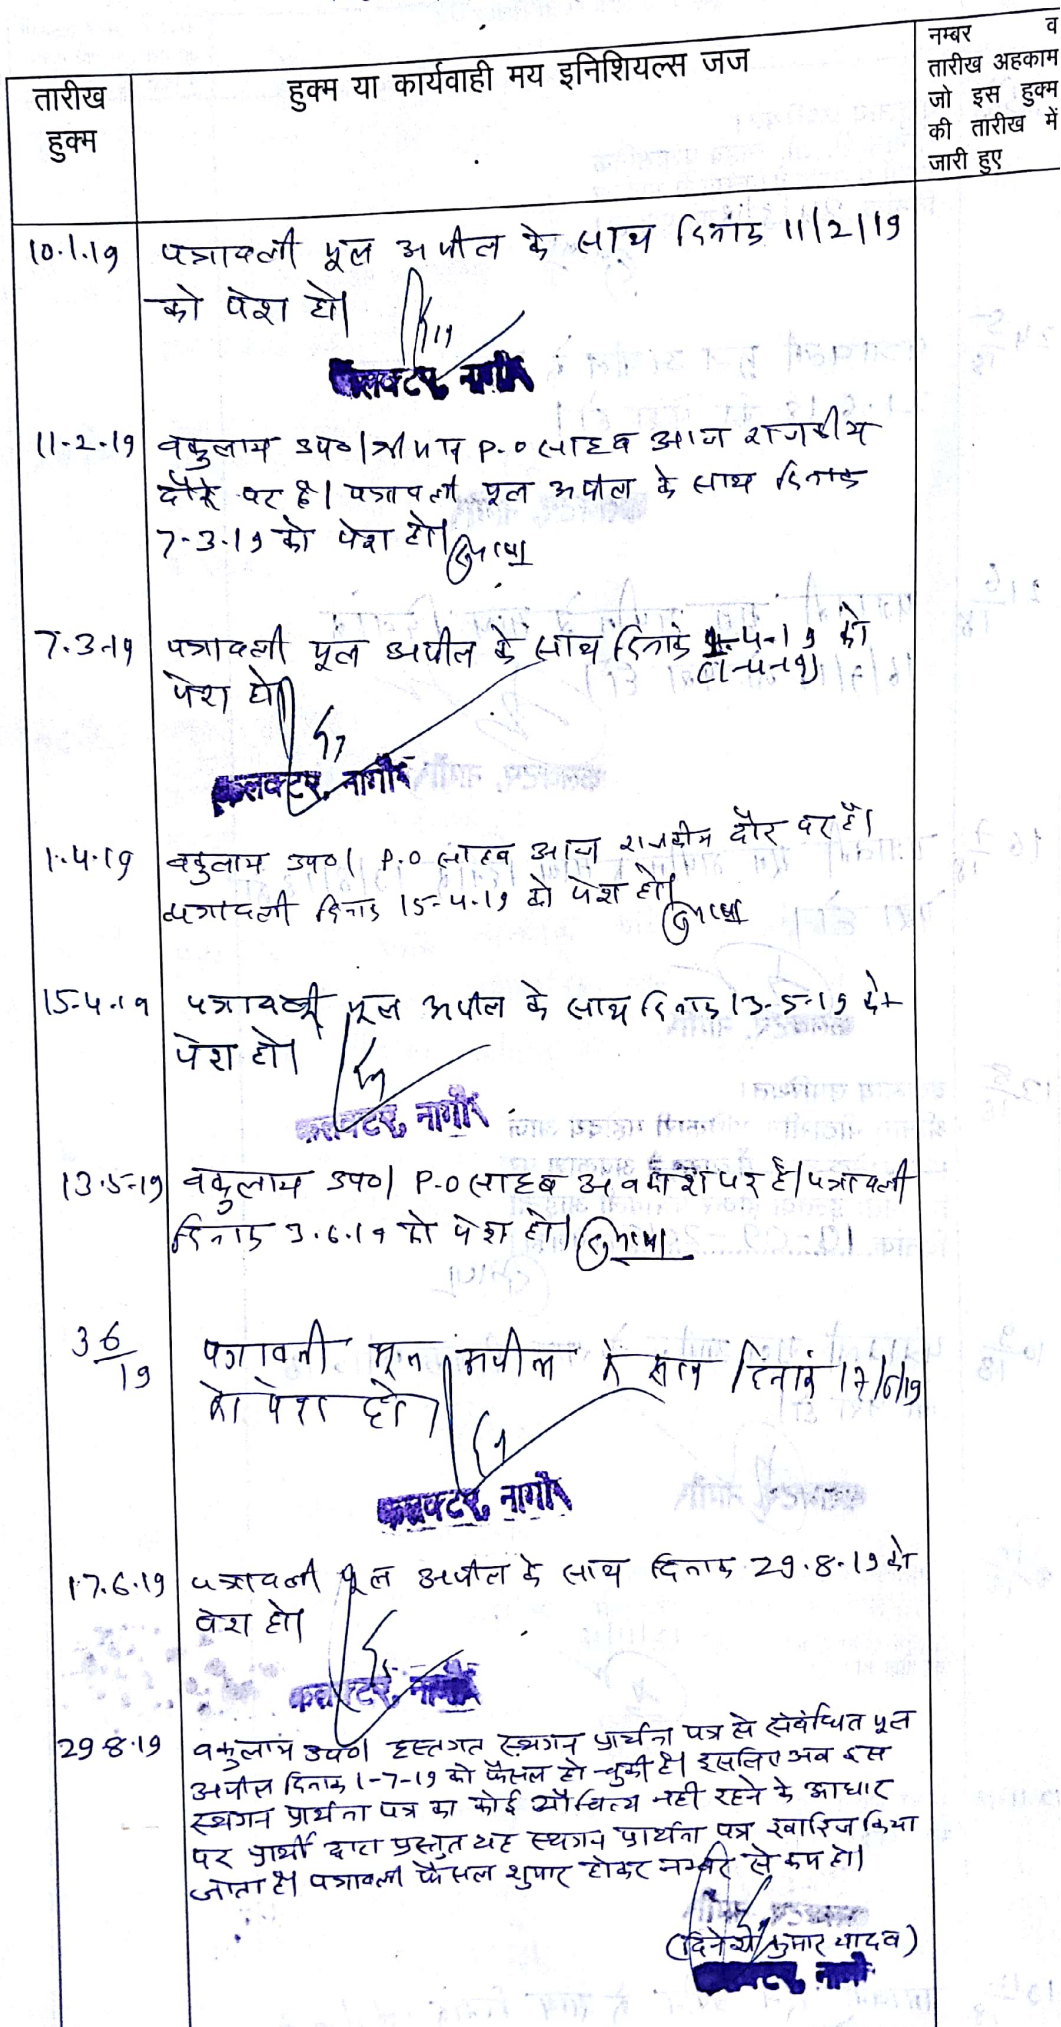 तारीख
हुक्म
हुक्म या कार्यवाही मय इनिशियल्स जज
नम्बर व
तारीख अहकाम
जो इस हुक्म
की तारीख में
जारी हुए
10.1.19 पत्रावली मूल अपील के साथ दिनांक 11/2/19
को पेश हो।
कलक्टर, नागौर
11-2-19 वकुलाय उप०। श्रीमान P.O साहब आज राजकीय
दौरे पर है। पत्रावली मूल अपील के साथ दिनांक
7-3-19 को पेश हो।
7.3.19 पत्रावली मूल अपील के साथ दिनांक 1-4-19 को
(1-4-19)
पेश हो।
कलक्टर, नागौर
1.4.19 वकुलाय उप०। P.O साहब आज राजकीय दौरे पर है।
पत्रावली दिनांक 15-4-19 को पेश हो।
15-4-19 पत्रावली मूल अपील के साथ दिनांक 13-5-19 को
पेश हो।
कलक्टर, नागौर
13.5.19 वकुलाय उप०। P.O साहब अवकाश पर है। पत्रावली
दिनांक 3.6.19 को पेश हो।
3 6/19 पत्रावली मूल अपील के साथ दिनांक 17/6/19
को पेश हो।
कलक्टर, नागौर
17.6.19 पत्रावली मूल अपील के साथ दिनांक 29.8.19 को
पेश हो।
कलक्टर, नागौर
29.8.19 वकुलाय उप०। हस्तगत स्थगन प्रार्थना पत्र से संबंधित मूल
अपील दिनांक 1-7-19 को फैसल हो चुकी है। इसलिए अब इस
स्थगन प्रार्थना पत्र का कोई औचित्य नही रहने के आधार
पर प्रार्थी द्वारा प्रस्तुत यह स्थगन प्रार्थना पत्र खारिज किया
जाता है। पत्रावली फैसल शुमार होकर नम्बर से कम हो।
(दिनेश कुमार यादव)
कलक्टर, नागौर